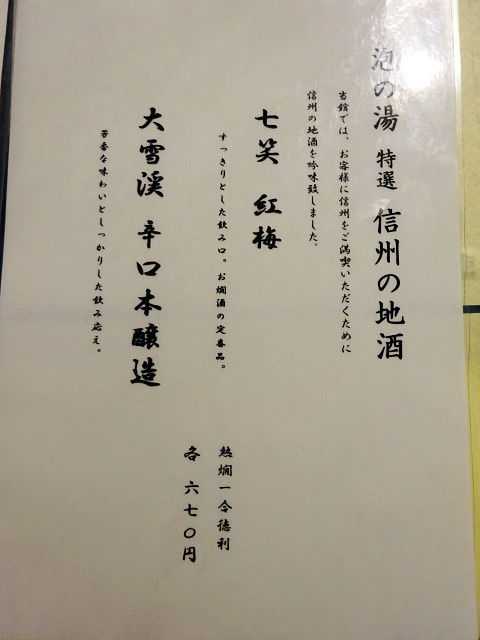 泡の湯 特選 信州の地酒
当館では、お客様に信州をご満喫いただくために
信州の地酒を吟味致しました。
七笑 紅梅
すっきりとした飲み口。お燗酒の定番品。
大雪渓 辛口本醸造
芳香な味わいとしっかりした飲み応え。
熱燗一合徳利
各 六七〇円